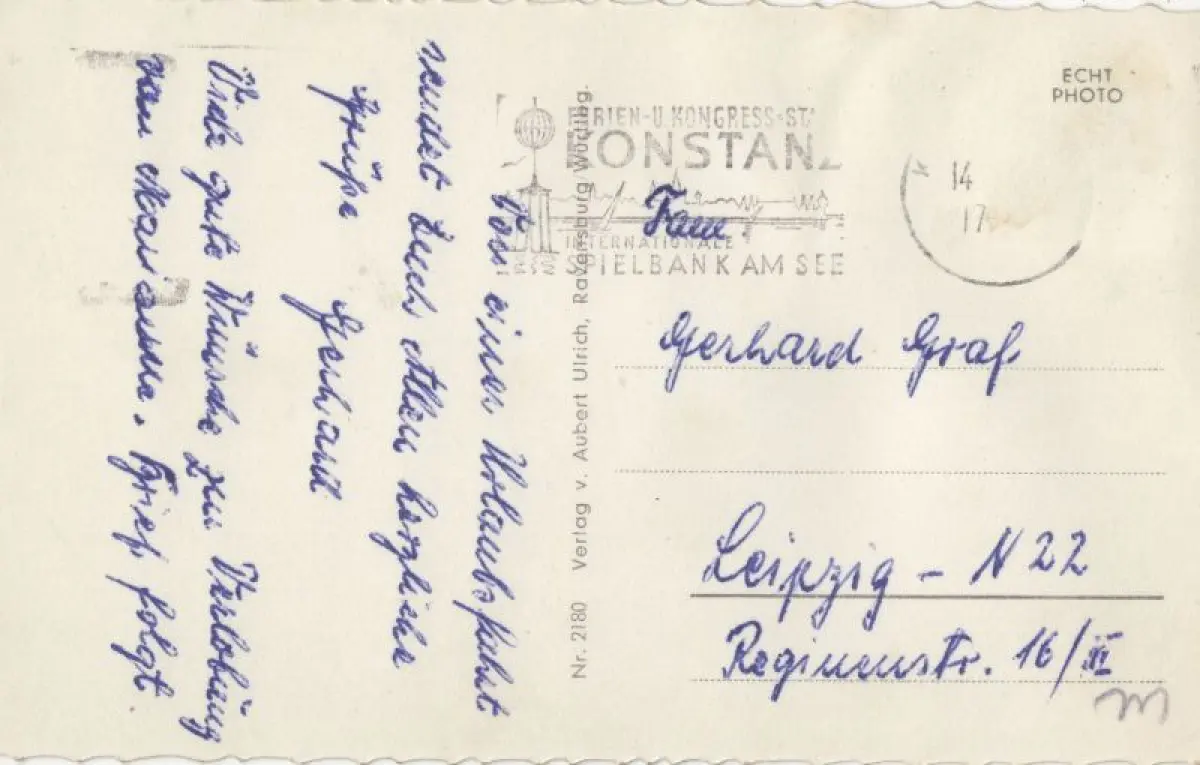 Von einer Urlaubsfahrt
sendet Euch Allen herzliche
Grüße Gerhard
Viele gute Wünsche zur Verlobung
von Marianne. Brief folgt.
Nr. 2180 Verlag v. Aubert Ulrich, Ravensburg Württbg.
ECHT
PHOTO
FERIEN-U.KONGRESS-ST
KONSTANZ
INTERNATIONALE
SPIELBANK AM SEE
14
17
Fam.
Gerhard Graf
Leipzig - N 22
Reginenstr. 16/III